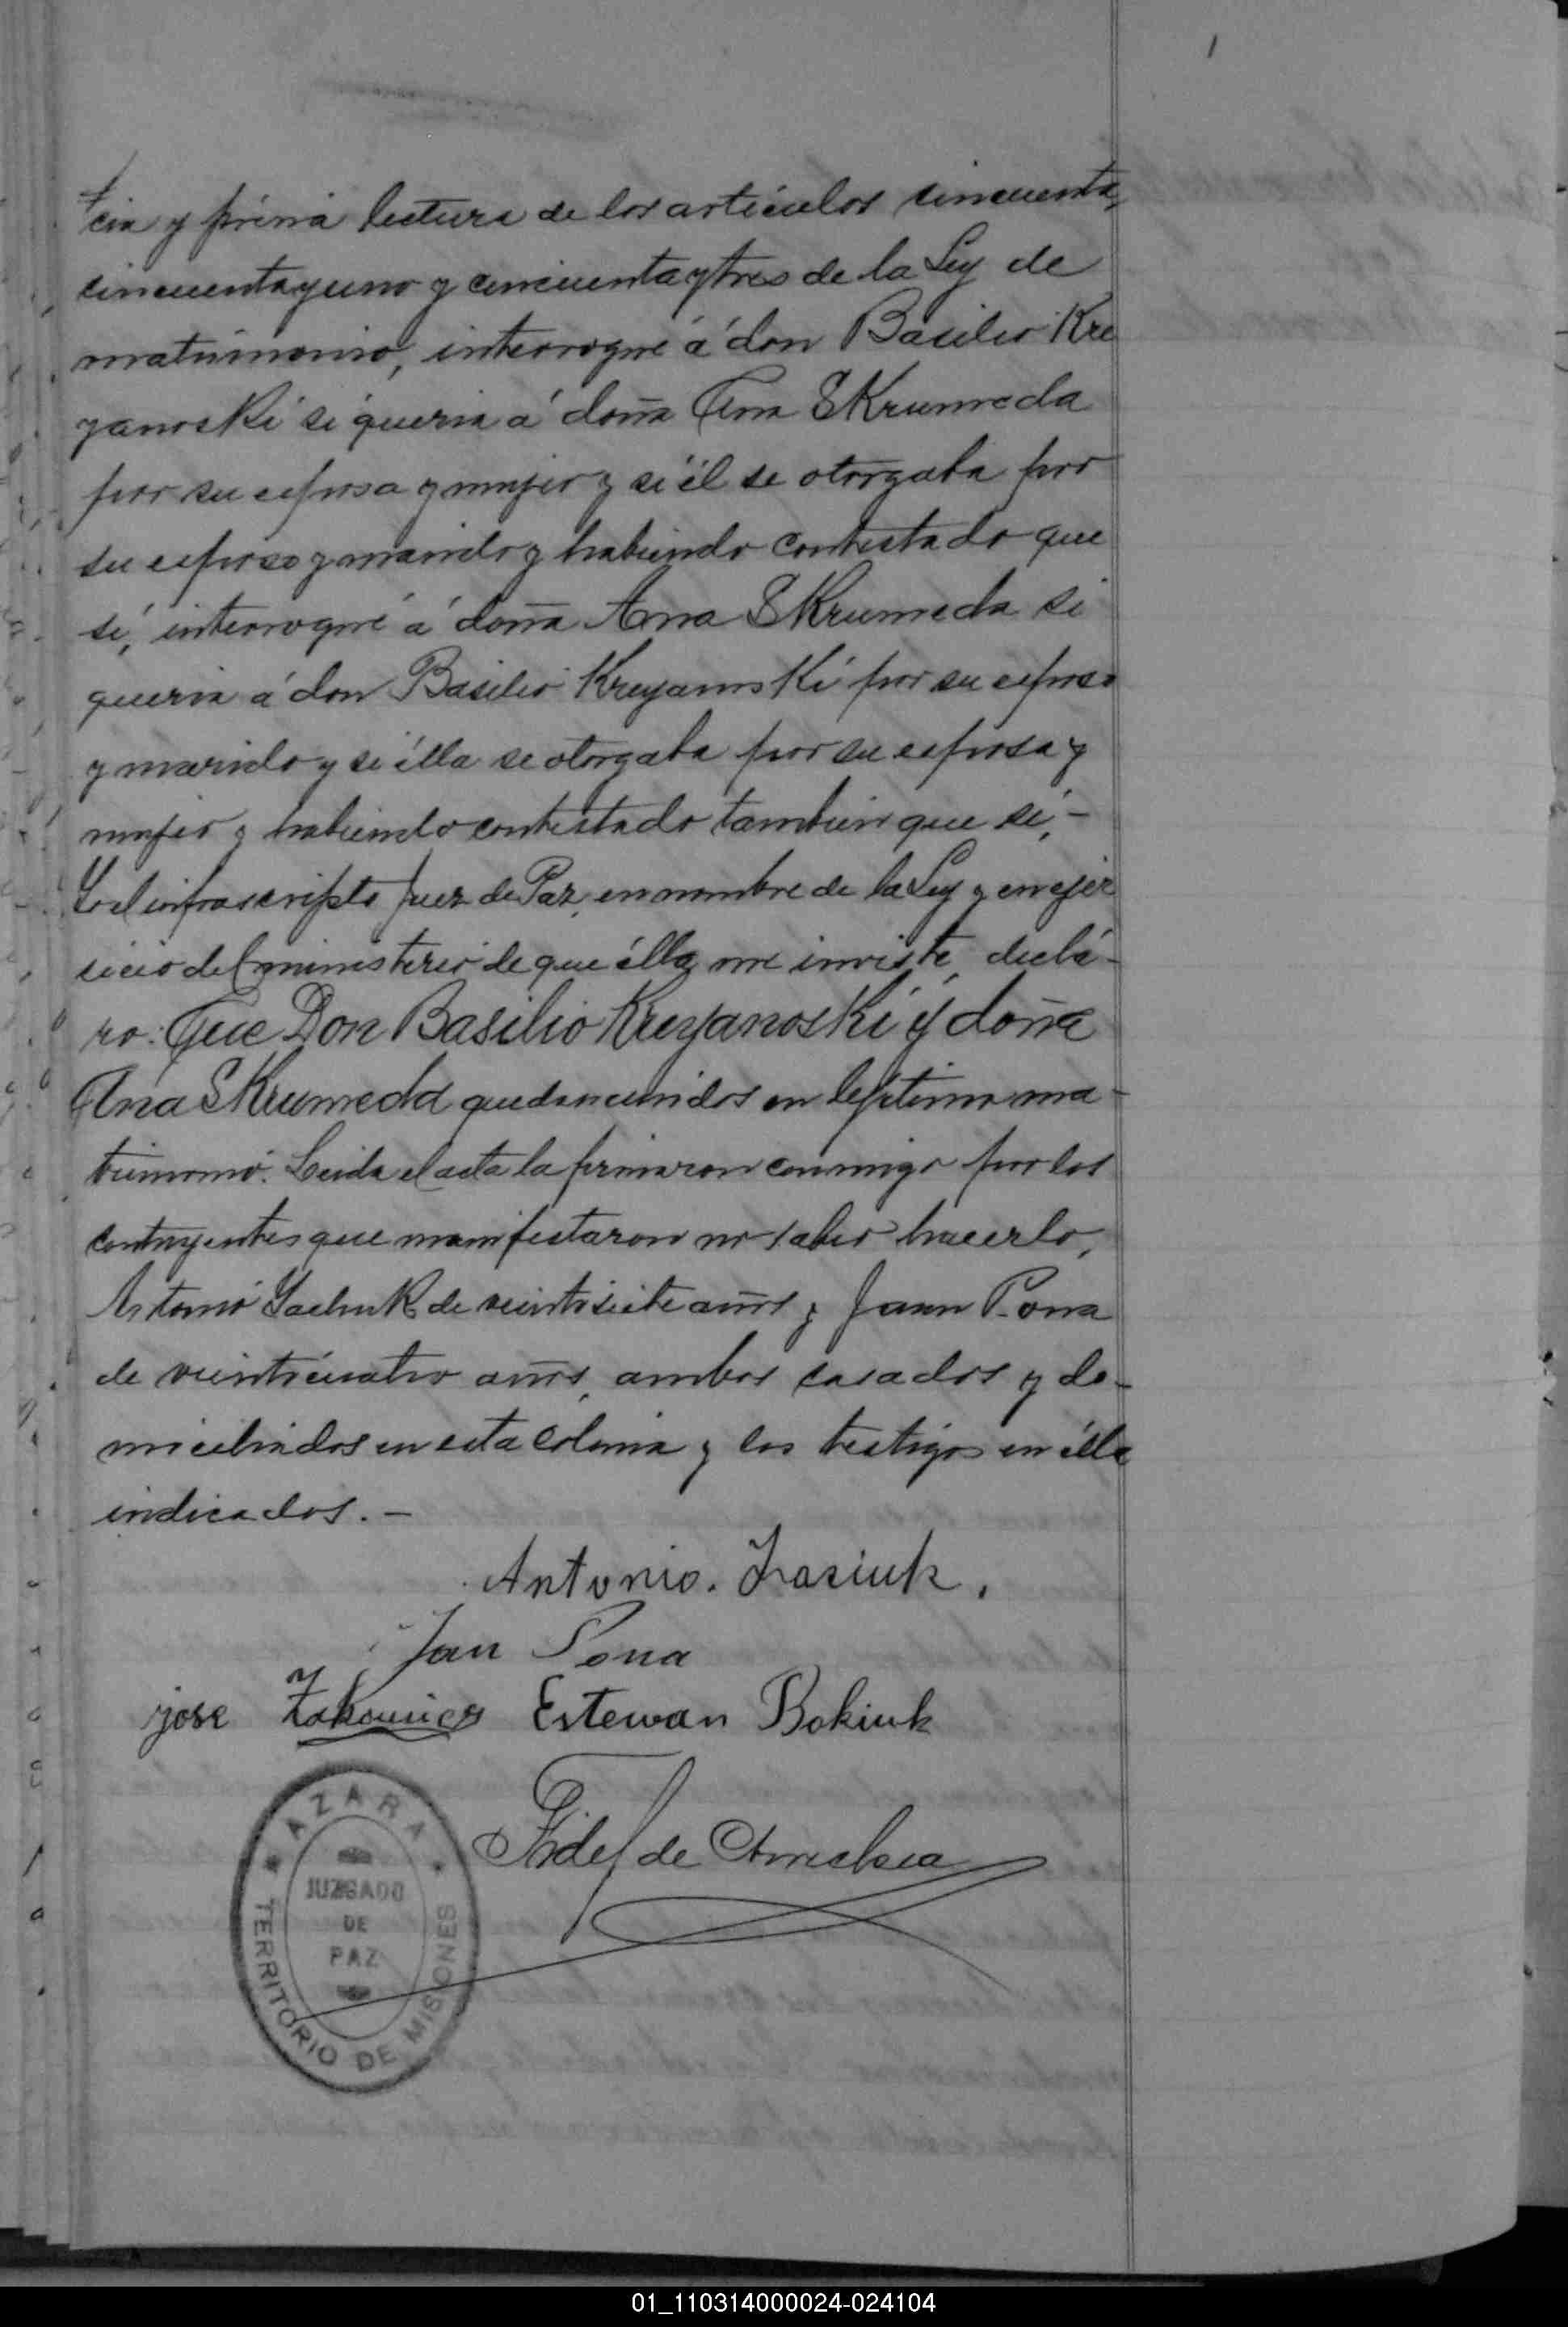 cia y prévia lectura de los artículos cincuenta,
cincuentayuno y cincuentaytres de la Ley de
matrimonio, interrogué á don Basilio Kre
yanoski si queria á doña Ana SKrumeda
por su esposa y mujer y si él se otorgaba por
su esposo y marido y habiendo contestado que
sí, interrogué á doña Ana SKrumeda si
queria á don Basilio Kreyanoski por su esposo
y marido y si élla se otorgaba por su esposa y
mujer y habiendo contestado tambien que sí,-
Yo el infrascripto Juez de Paz, en nombre de la Ley y en ejer
sicio del ministerio de que élla me inviste, declá-
ro: Que Don Basilio Kreyanoski y doña
Ana SKrumeda quedan unidos en lejítimo ma-
trimonio. Leida el acta la firmaron conmigo por los
contrayentes que manifestaron no saber hacerlo,
Antonio de veintisiete años y Juan Pona
de veinticuatro años, ambos casados y do-
miciliados en esta Colonia y los testigos en élla
indicados.-
Antonio. Zasiuk.
Jan Pona
jose Estewan Bokiuk
Fidel de
AZARA
JUZGADO
DE
PAZ
TERRITORIO DE MISIONES
01_110314000024-024104